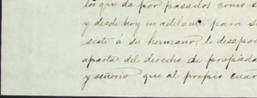 los que da por pasados como s
y desde hoy in adelante para s
siste á su hermano le desapo
aparta del derecho de propiedad
y señorio que al propio cuar